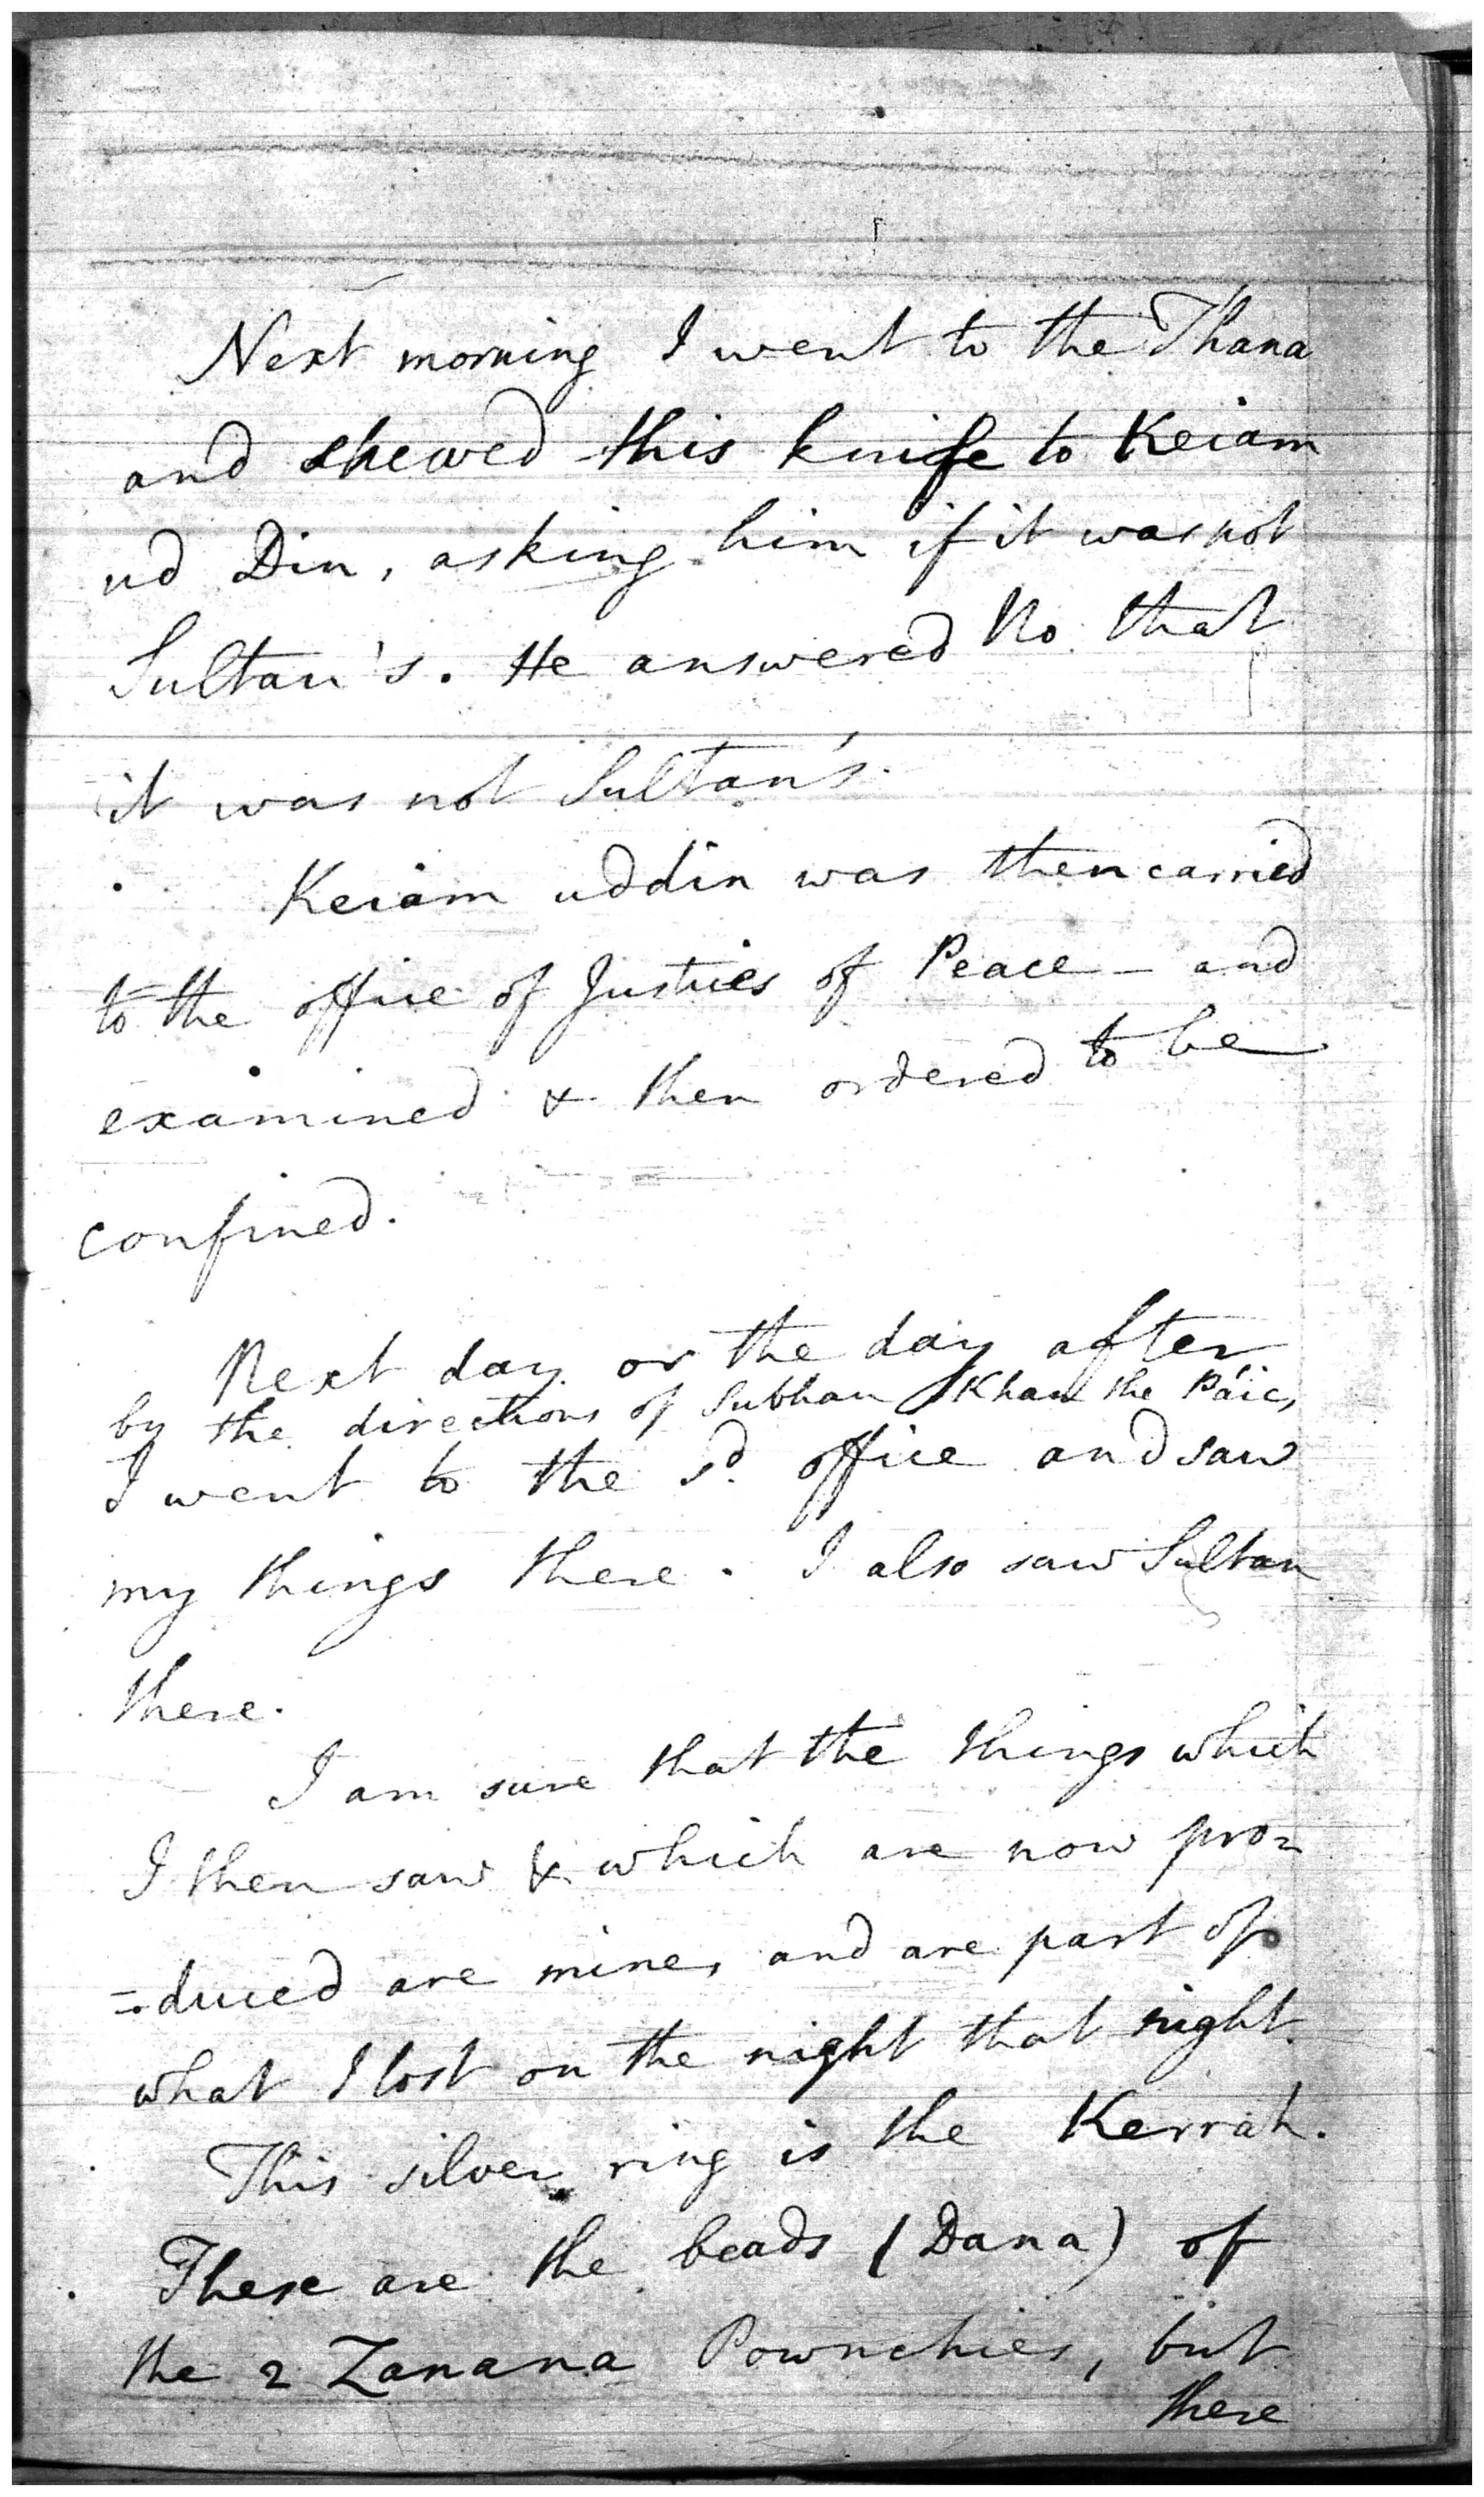 Next morning I went to the Thana
and shewed this knife to Keiam
ud Din, asking him if it was not
Sultan's. He answered No that
it was not Sultan's.
Keiam uddin was then carried
to the office of Justices of Peace - and
examined & then ordered to be
confined.
Next day or the day after
by the directions of Subhan Khan the Paic,
I went to the sd. office and saw
my things there. I also saw Sultan
there.
I am sure that the things which
I then saw & which are now pro=
=duced are mine, and are part of
what I lost on the night that night.
This silver ring is the Kerrah.
These are the beads (Dana) of
the 2 Zanana Pownchies, but
there